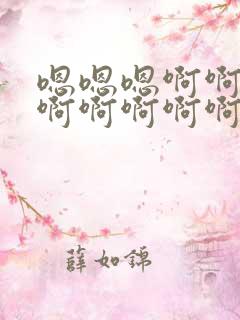 嗯嗯嗯啊啊
啊啊啊啊啊
薛如锦